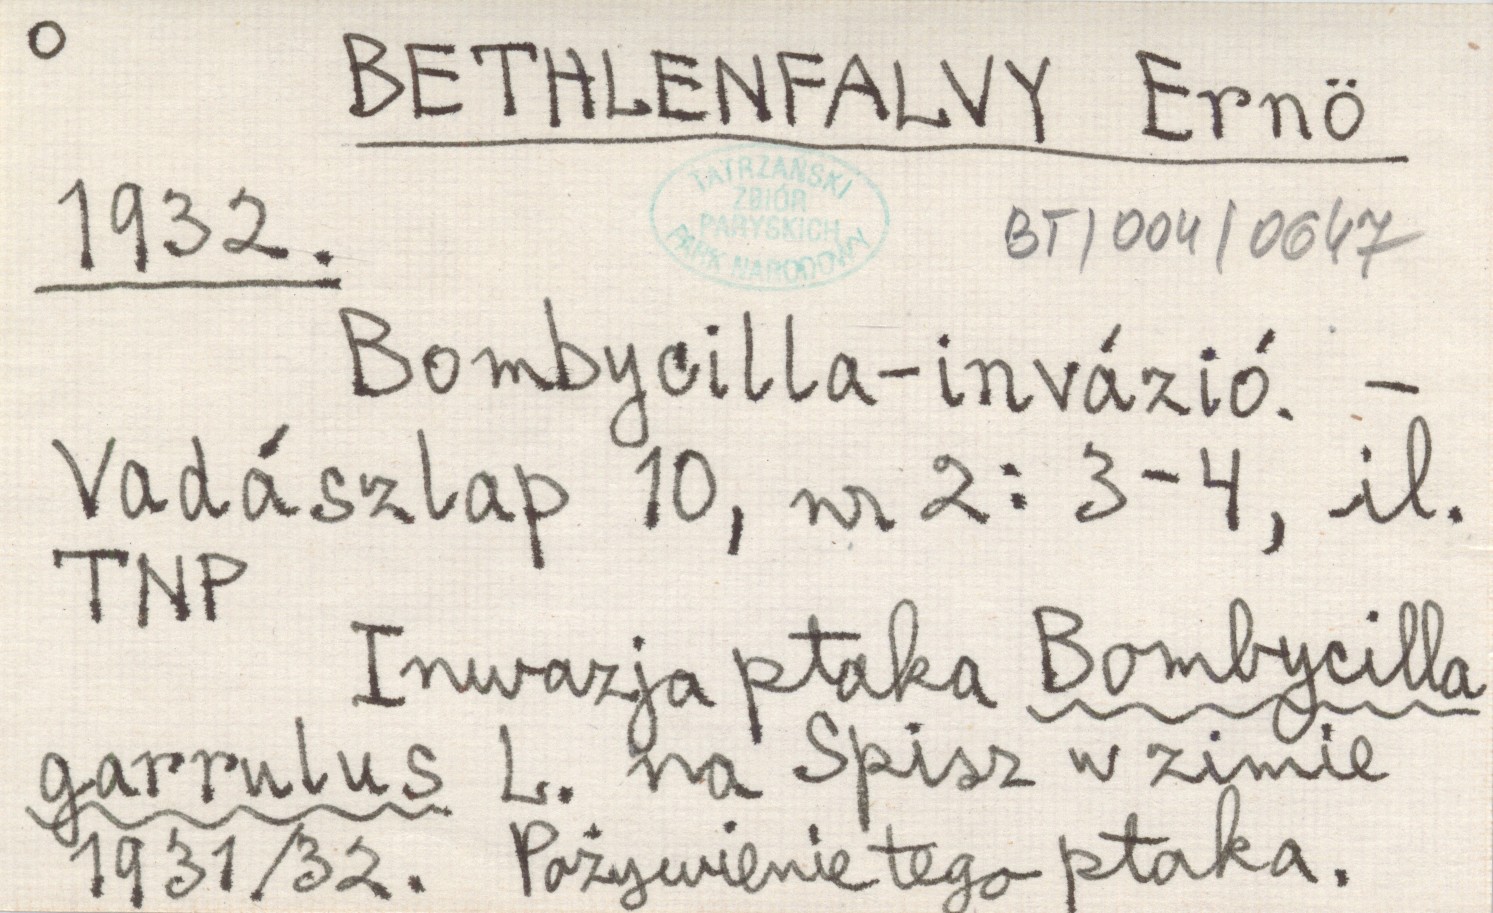 BETHLENFALVY Ernö
1932.
TATRZAŃSKI
ZBIÓR
PARYSKICH
PARK NARODOWY
BT/004/0647
Bombycilla-invázió. –
Vadászlap 10, nr 2: 3-4, il.
TNP
Inwazja ptaka Bombycilla
garrulus L. na Spisz w zimie
1931/32. Pożywienie tego ptaka.